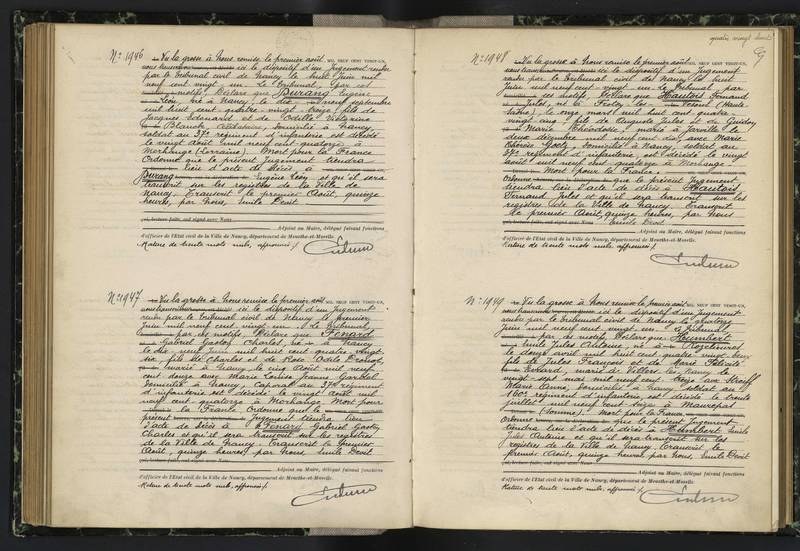 quatre vingt
N° 1946
Vu la grosse à Nous remise le premier août MIL NEUF CENT VINGT-UN,
ici le dispositif d'un Jugement rendu
par le Tribunal civil de Nancy le huit Juin mil
neuf cent vingt un. Le Tribunal, par ces
motifs, Déclare que Durang Eugène
Léon, né à Nancy, le dix neuf septembre
mil huit cent quatre vingt treize, fils de
Jacques Edouard et de Odille Victorine
Blanche, domicilié à Nancy,
soldat au 37e régiment d'infanterie est décédé
le vingt Août mil neuf cent quatorze à
Morhange (Lorraine). Mort pour la France
Ordonne que le présent Jugement tiendra
lieu d'acte de décès à
Durang Eugène Léon et qu'il sera
transcrit sur les registres de la Ville de
Nancy. Transcrit le premier Août, quinze
heures, par Nous, Emile Droit
et, lecture faite, ont signé avec Nous
Adjoint au Maire, délégué faisant fonctions
d'officier de l'Etat civil de la Ville de Nancy, département de Meurthe-et-Moselle.
Rature de trente mots nuls, approuvés /.
N° 1947
Vu la grosse à Nous remise le premier août MIL NEUF CENT VINGT-UN,
ici le dispositif d'un Jugement
rendu par le Tribunal civil de Nancy le premier
Juin mil neuf cent vingt un. Le Tribunal
par ces motifs. Déclare que Fenard
Gabriel Gaston Charles, né à Nancy
le dix neuf Juin mil huit cent quatre vingt
six, fils de Charles et de Rose Odile
marié à Nancy, le cinq Août mil neuf
cent douze avec Marie Louise Jeanne
domicilié à Nancy, Caporal au 37e régiment
d'infanterie est décédé le vingt Août mil
neuf cent quatorze à Morhange. Mort pour
la France. Ordonne que le
présent Jugement tiendra lieu
d'acte de décès à Fenard Gabriel Gaston
Charles et qu'il sera transcrit sur les registres
de la Ville de Nancy. Transcrit le premier
Août, quinze heures, par Nous, Emile Droit
et, lecture faite, ont signé avec Nous
Adjoint au Maire, délégué faisant fonctions
d'officier de l'Etat civil de la Ville de Nancy, département de Meurthe-et-Moselle.
Rature de trente mots nuls, approuvés /.
N° 1948
Vu la grosse à Nous remise le premier août MIL NEUF CENT VINGT-UN,
ici le dispositif d'un Jugement
rendu par le Tribunal civil de Nancy le huit
Juin mil neuf cent vingt un. Le Tribunal, par
ces motifs Déclare que Hautois Fernand
Jules, né à Froley les Vesoul (Haute
Saône), le onze mars mil huit cent quatre
vingt cinq, fils de Auguste Jules et de
Marie, marié à Jarville le
deux décembre mil neuf cent dix avec Marie
Thérèse, domicilié à Nancy, soldat au
37e régiment d'infanterie, est décédé le vingt
août mil neuf cent quatorze à Morhange
Mort pour la France.
Ordonne que le présent Jugement
tiendra lieu d'acte de décès à Hautois
Fernand Jules et qu'il sera transcrit sur les
registres de la Ville de Nancy. Transcrit
le premier Août, quinze heures, par Nous
et, lecture faite, ont signé avec Nous Emile Droit
Adjoint au Maire, délégué faisant fonctions
d'officier de l'Etat civil de la Ville de Nancy, département de Meurthe-et-Moselle.
Rature de trente mots nuls, approuvés /.
N° 1949
Vu la grosse à Nous remise le premier août MIL NEUF CENT VINGT-UN,
ici le dispositif d'un Jugement
rendu par le Tribunal civil de Nancy le
Juin mil neuf cent vingt un. Le Tribunal
par ces motifs, Déclare que Humbert
Emile Jules Antoine, né à Rozelieures
le douze avril mil huit cent quatre vingt
fils de Jules François et de Marie Félicité
marié à Villers les Nancy le
vingt sept mai mil neuf cent
Marie Anne, domicilié à Nancy, soldat au
160e régiment d'infanterie, est décédé le trente
juillet mil neuf cent seize à Maurepas
(Somme). Mort pour la France.
Ordonne que le présent Jugement
tiendra lieu d'acte de décès à Humbert Emile
Jules Antoine et qu'il sera transcrit sur les
registres de la Ville de Nancy. Transcrit le
premier Août, quinze heures, par Nous, Emile Droit
et, lecture faite, ont signé avec Nous
Adjoint au Maire, délégué faisant fonctions
d'officier de l'Etat civil de la Ville de Nancy, département de Meurthe-et-Moselle.
Rature de trente mots nuls, approuvés /.